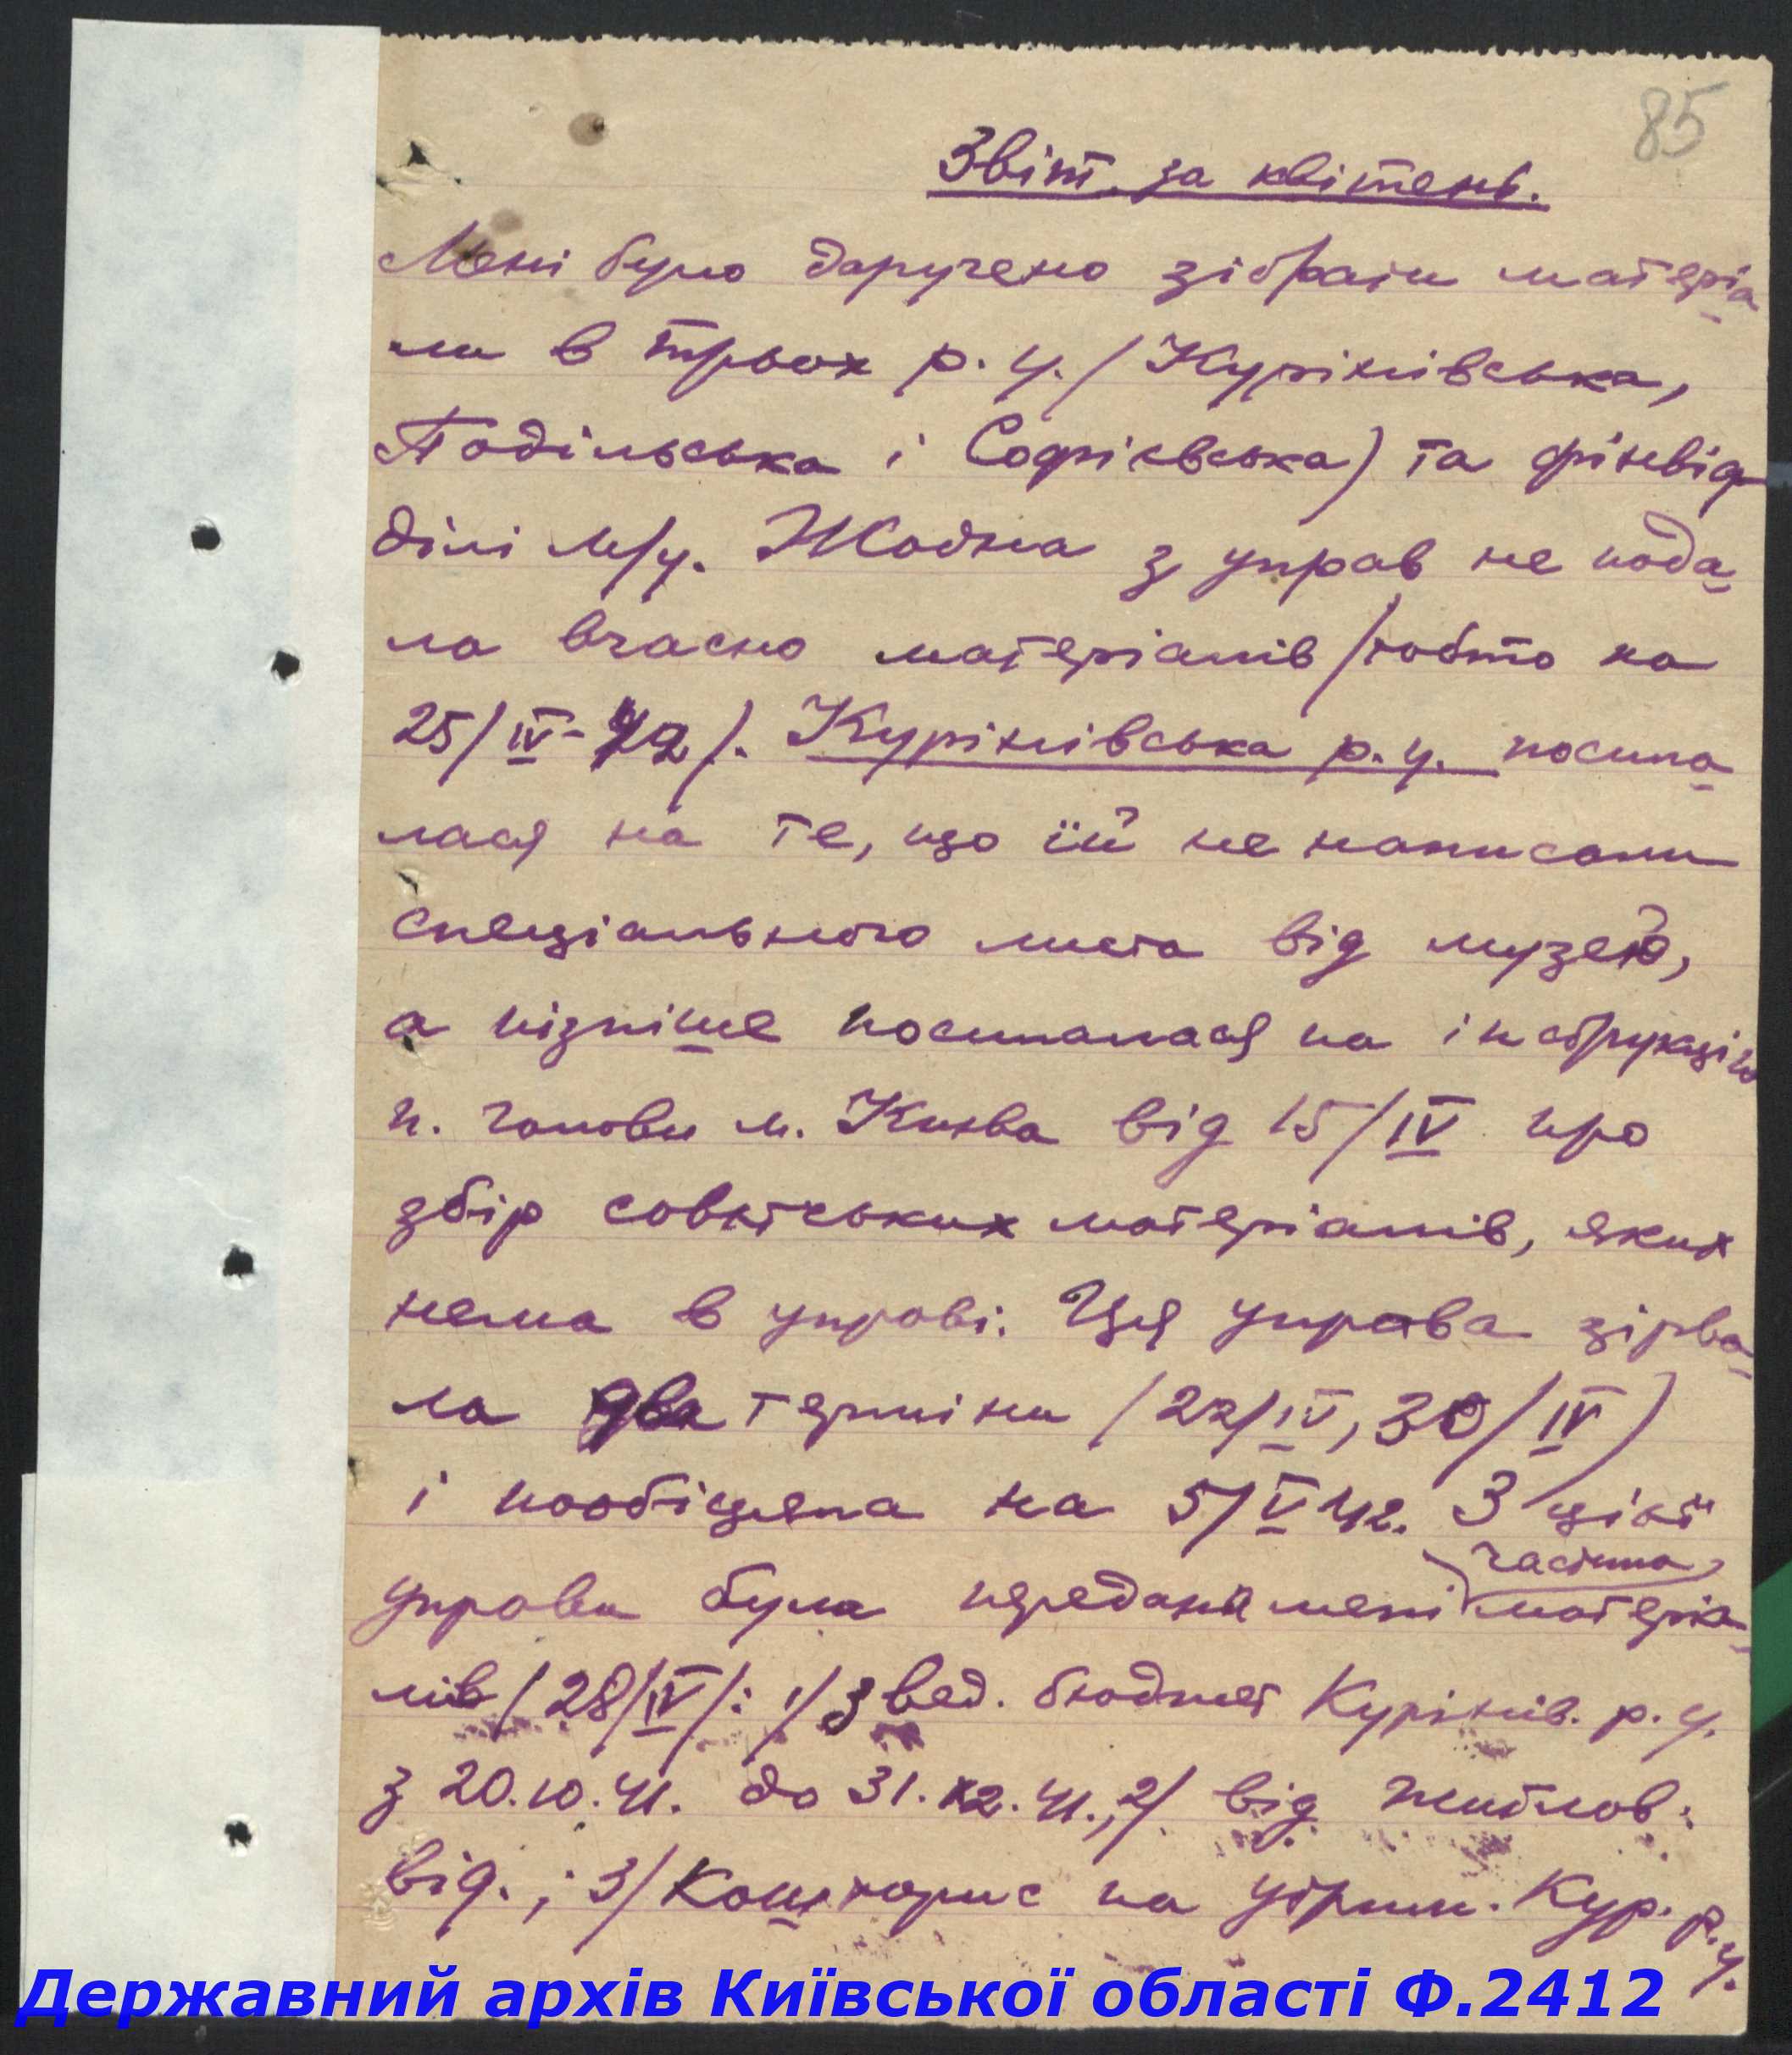 85
Звіт за квітень.
Мені було доручено зібрати матеріа
ли в трьох р. у. /Куренівська,
Подільська і Софієвська) та фінвід
ділі М/у. Жодна з управ не пода-
ла вчасно матеріалів /тобто на
25/IV-42/. Куренівська р. у. посила-
лася на те, що їй не написали
спеціального листа від музею,
а пізніше посилалася на інструкцію
п. голови м. Києва від 15/IV про
збір совєтських матеріалів, яких
нема в управі. Ця управа зірва-
ла два терміни /22/IV, 30/IV)
і пообіцяла на 5/V 42. З цієї
частина
управи була передана мені матеріа-
лів /28/IV/: 1/ Звед. бюджет Куренів. р. у.
з 20.10.41. до 31.12.41., 2/ від житлов.
від.; 3/ Кошторис на утрим. Кур. р. у.
Державний архів Київської області Ф.2412